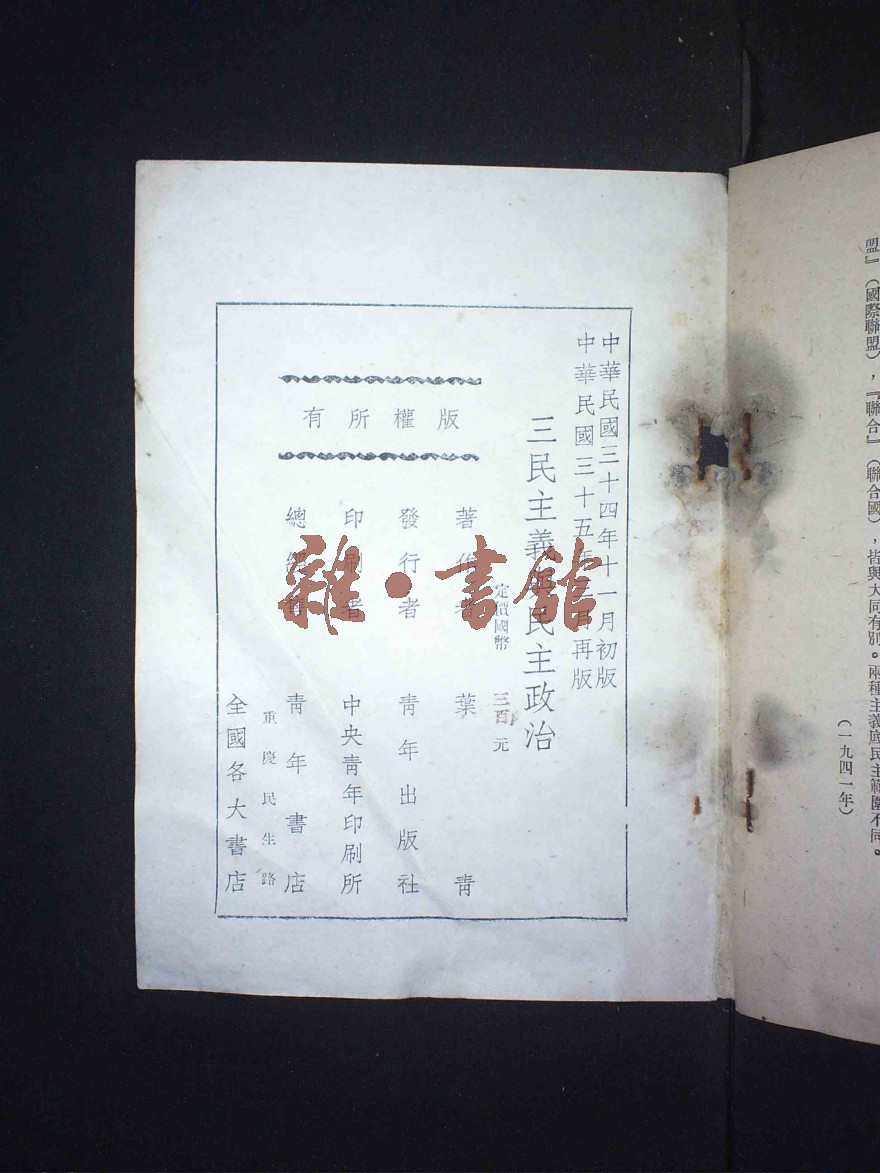 盟』（國際聯盟），『聯合』（聯合國），皆與大同有別。兩種主義底民主範圍不同。
（一九四一年）
中華民國三十四年十一月初版
中華民國三十五年 月再版
三民主義與民主政治
定價國幣 三百元
版權所有
著作者 葉青
發行者 青年出版社
印刷者 中央青年印刷所
總經售 青年書店
重慶民生路
全國各大書店
雜·書館